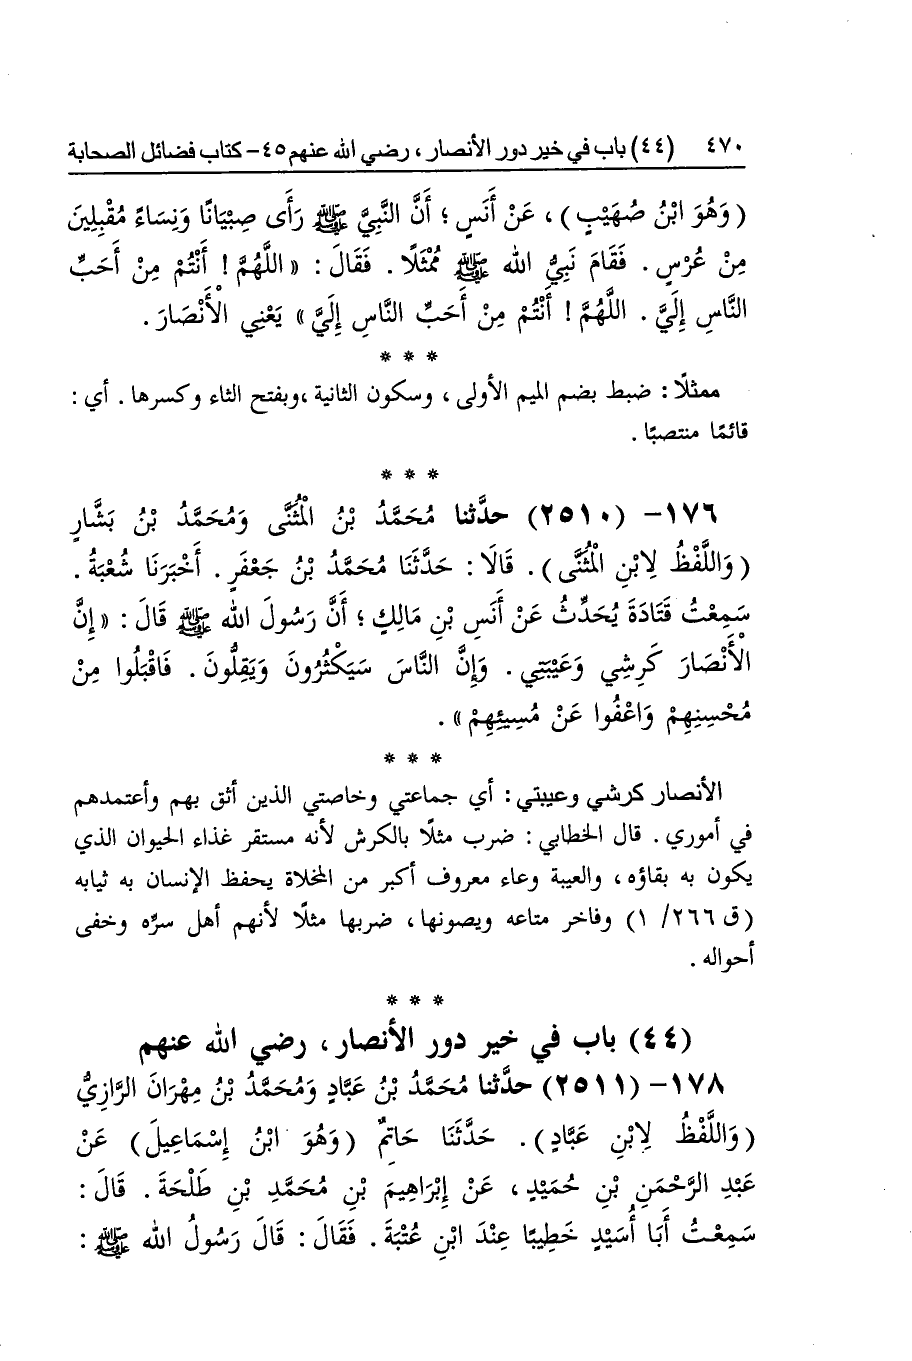 ٤٧٠ (٤٤) باب في خير دور الأنصار ، رضي الله عنهم ٤٥- كتاب فضائل الصحابة
(وَهُوَ ابْنُ صُهَيْبٍ) ، عَنْ أَنَسٍ ؛ أَنَّ النَّبِيَّ ﷺ رَأَى صِبْيَانًا وَنِسَاءً مُقْبِلِينَ
مِنْ عُرْسٍ . فَقَامَ نَبِيُّ الله ﷺ مُمْثَلًا . فَقَالَ : « اللَّهُمَّ ! أَنْتُمْ مِنْ أَحَبِّ
النَّاسِ إِلَيَّ . اللَّهُمَّ ! أَنْتُمْ مِنْ أَحَبِّ النَّاسِ إِلَيَّ » يَعْنِي الْأَنْصَارَ .
* * *
ممثلًا : ضبط بضم الميم الأولى ، وسكون الثانية ،وبفتح الثاء وكسرها . أي :
قائمًا منتصبًا .
* * *
١٧٦- (٢٥١٠) حدَّثنا مُحَمَّدُ بْنُ الْمُثَنَّى وَمُحَمَّدُ بْنُ بَشَّارٍ
(وَاللَّفْظُ لِابْنِ الْمُثَنَّى) . قَالَا : حَدَّثَنَا مُحَمَّدُ بْنُ جَعْفَرٍ . أَخْبَرَنَا شُعْبَةُ .
سَمِعْتُ قَتَادَةَ يُحَدِّثُ عَنْ أَنَسِ بْنِ مَالِكٍ ؛ أَنَّ رَسُولَ الله ﷺ قَالَ : « إِنَّ
الْأَنْصَارَ كَرِشِي وَعَيْبَتِي . وَإِنَّ النَّاسَ سَيَكْثُرُونَ وَيَقِلُّونَ . فَاقْبَلُوا مِنْ
مُحْسِنِهِمْ وَاعْفُوا عَنْ مُسِيئِهِمْ » .
* * *
الأنصار كرشي وعيبتي : أي جماعتي وخاصتي الذين أثق بهم وأعتمدهم
في أموري . قال الخطابي : ضرب مثلًا بالكرش لأنه مستقر غذاء الحيوان الذي
يكون به بقاؤه ، والعيبة وعاء معروف أكبر من المخلاة يحفظ الإنسان به ثيابه
(ق ٢٦٦/ ١) وفاخر متاعه ويصونها ، ضربها مثلًا لأنهم أهل سرِّه وخفى
أحواله .
* * *
(٤٤) باب في خير دور الأنصار ، رضي الله عنهم
١٧٨- (٢٥١١) حدَّثنا مُحَمَّدُ بْنُ عَبَّادٍ وَمُحَمَّدُ بْنُ مِهْرَانَ الرَّازِيُّ
(وَاللَّفْظُ لِابْنِ عَبَّادٍ) . حَدَّثَنَا حَاتِمٌ (وَهُوَ ابْنُ إِسْمَاعِيلَ) عَنْ
عَبْدِ الرَّحْمَنِ بْنِ حُمَيْدٍ ، عَنْ إِبْرَاهِيمَ بْنِ مُحَمَّدِ بْنِ طَلْحَةَ . قَالَ :
سَمِعْتُ أَبَا أُسَيْدٍ خَطِيبًا عِنْدَ ابْنِ عُتْبَةَ . فَقَالَ : قَالَ رَسُولُ الله ﷺ :